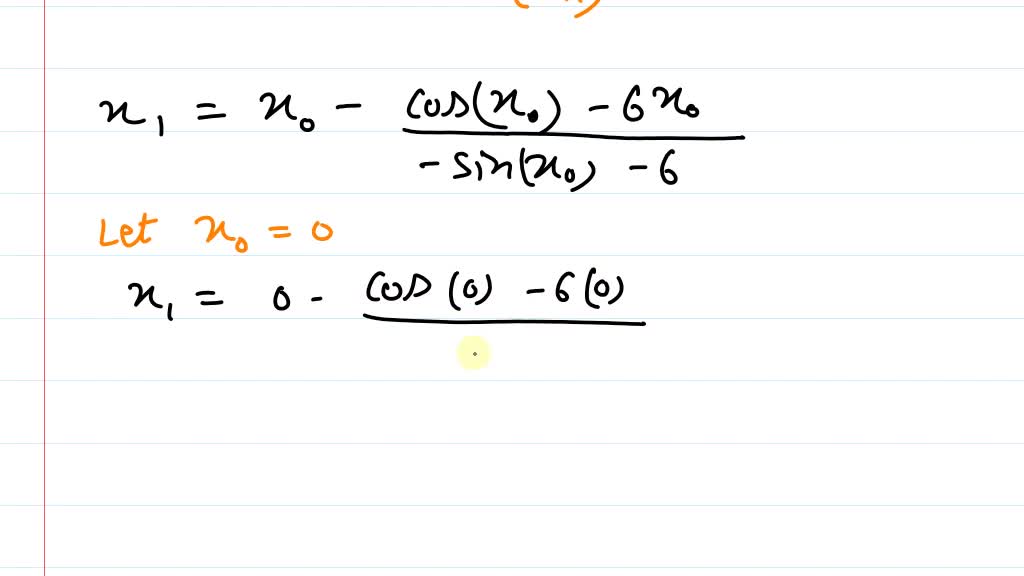 x₁ = x₀ - cos(x₀) - 6x₀
- sin(x₀) - 6
Let x₀ = 0
x₁ = 0 - cos(0) - 6(0)